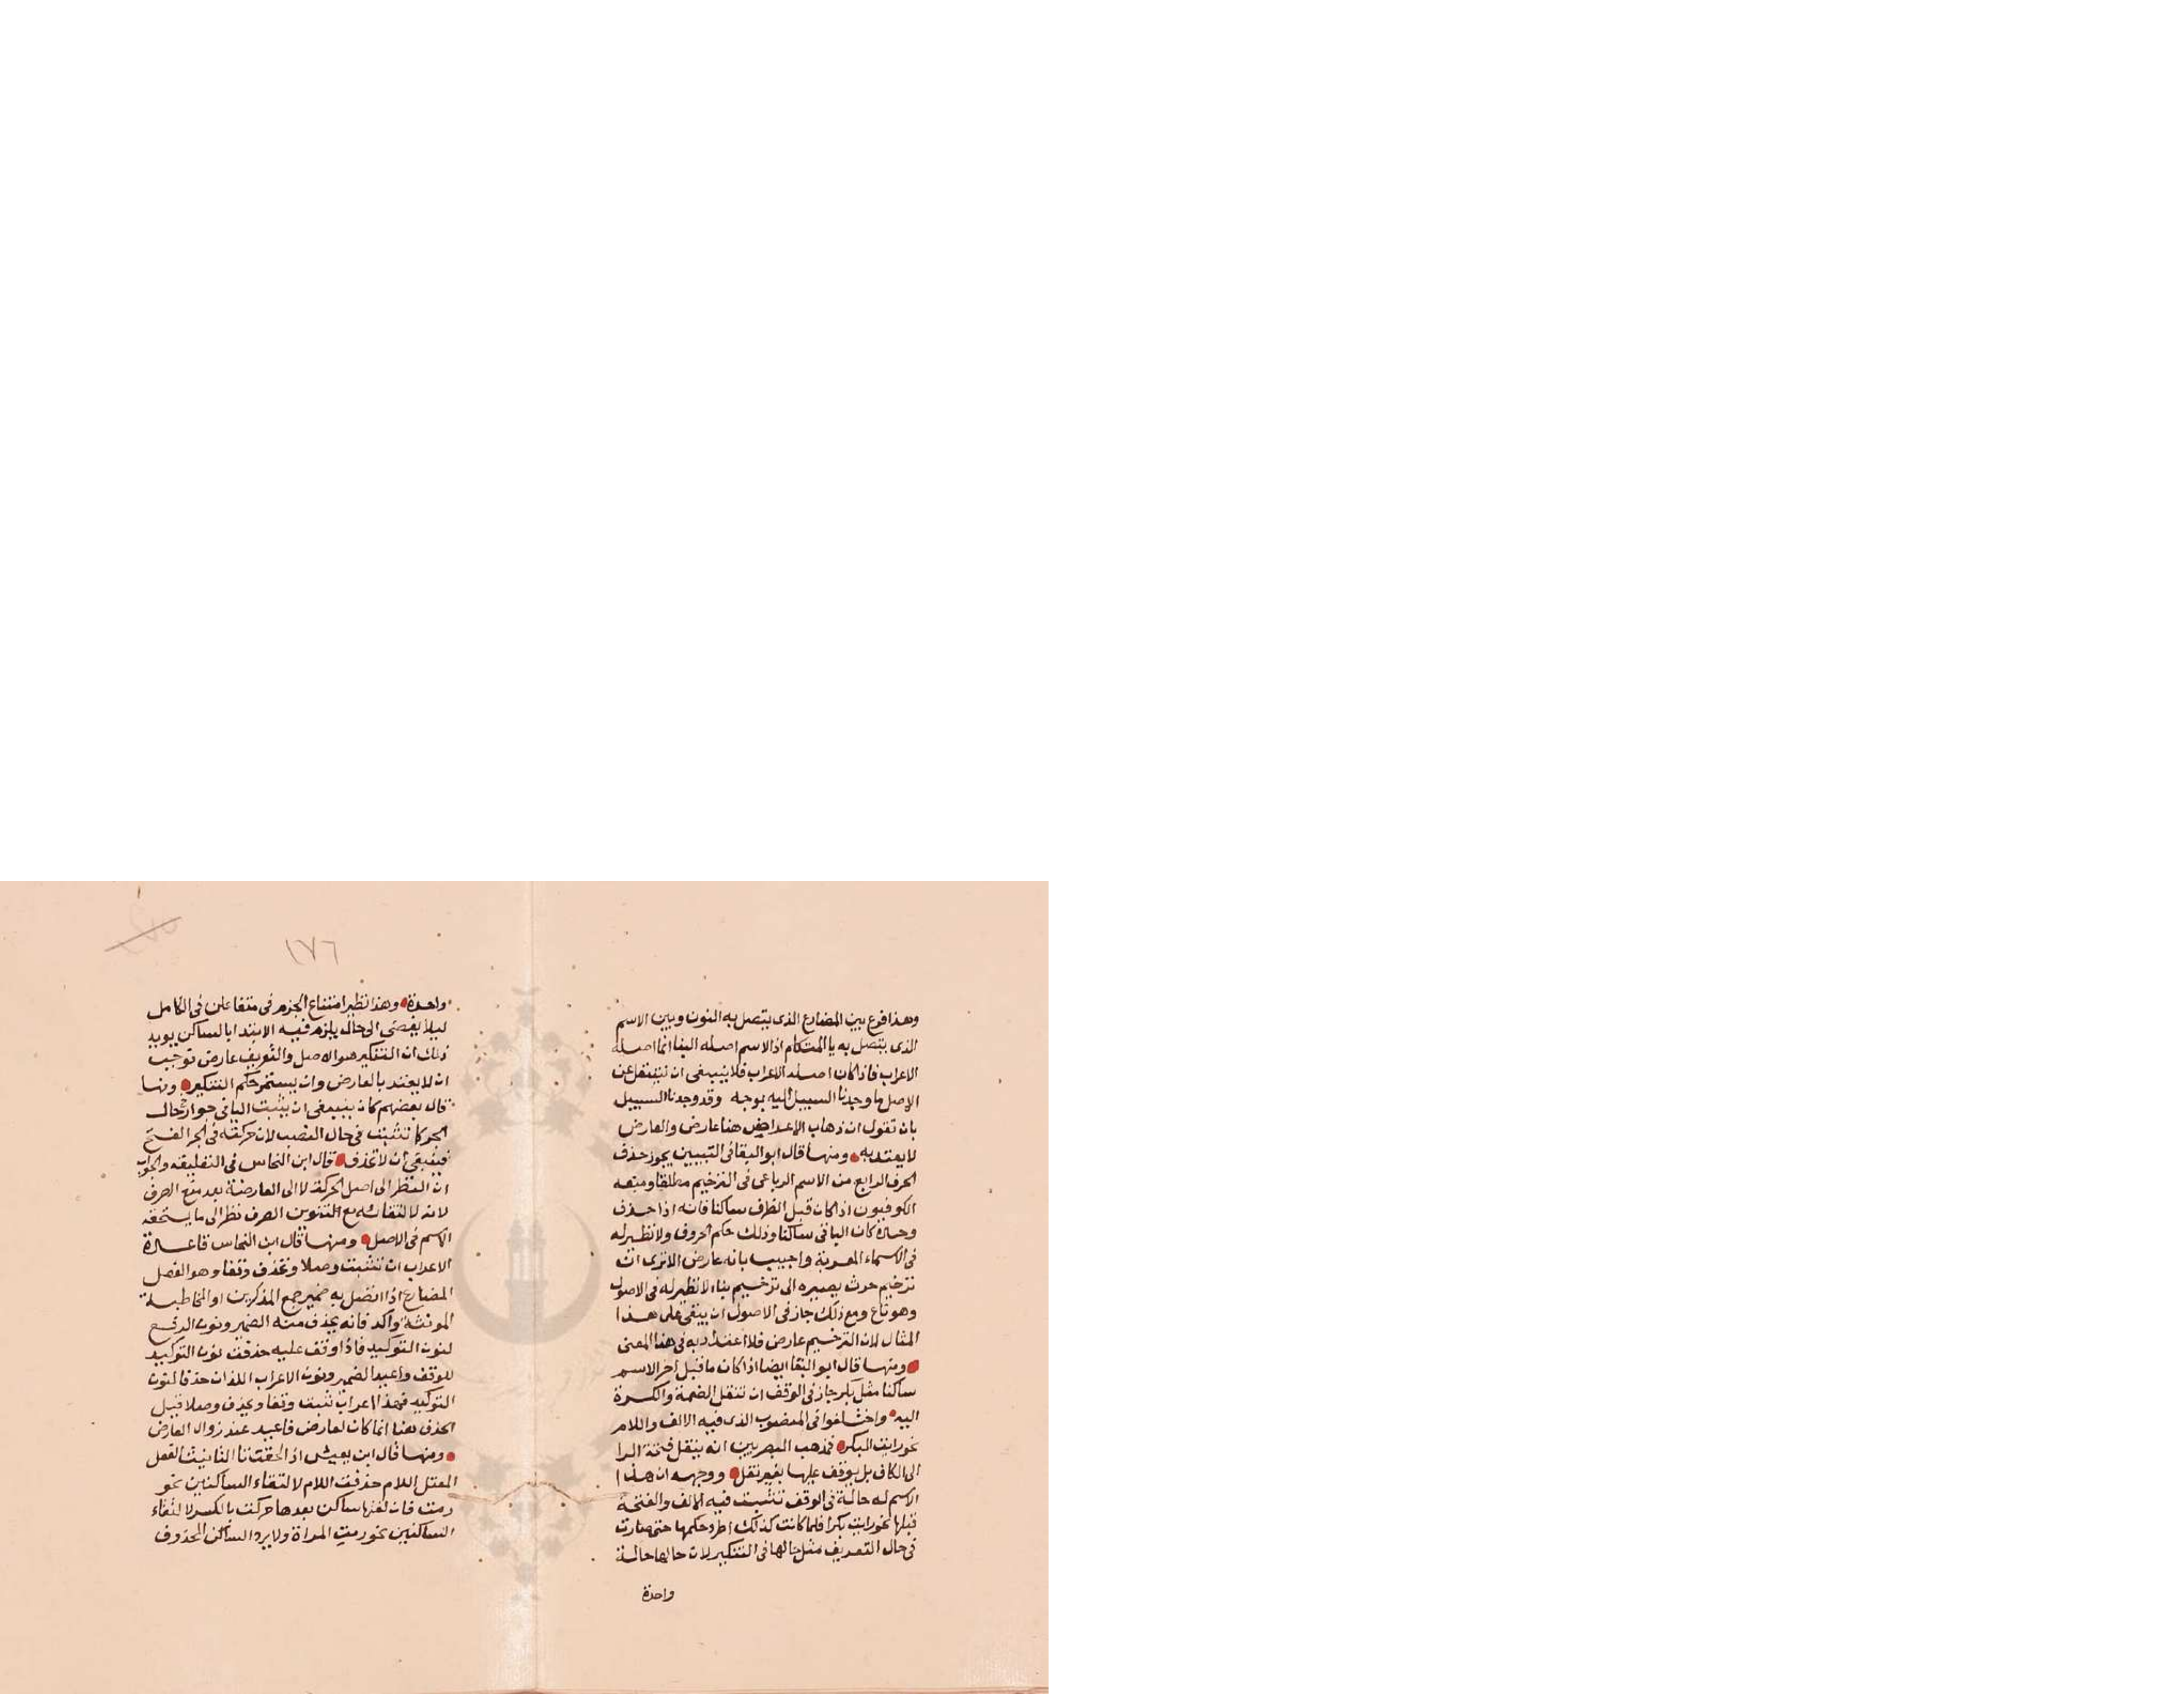 وهذا فرق بين المضارع الذى يتصل به النون وبين الاسم
الذى يتصل به يا المتكلم اذ الاسم اصله البنا انما اصله
الاعراب فاذا كان اصله الاعراب فلا ينبغى ان ينتقل عن
الاصل ما وجدنا السبيل اليه بوجه وقد وجدنا السبيل
بان تقول ان ذهاب الاعراب هنا عارض والعارض
لا يعتد به ومنها قال ابو البقا فى التبيين يجوز حذف
الحرف الرابع من الاسم الرباعى فى الترخيم مطلقا ومنعه
الكوفيون اذا كان قبل الطرف ساكنا فانه اذا حذف
وحده كان الباقى ساكنا وذلك حكم الحروف ولا نظير له
فى الاسماء المعربة واجيب بانه عارض الا ترى ان
ترخيم حرث يصيره الى ترخيم بناء لا نظير له فى الاصول
وهو ومع ذلك جاز فى الاصول ان يبقى على هذا
المثال لان الترخيم عارض فلا اعتداد به فى هذا المعنى
ومنها قال ابو البقا ايضا اذا كان ما قبل اخر الاسم
ساكنا مثل بكر جاز فى الوقف ان تنقل الضمة والكسرة
اليه واختلفوا فى المنصوب الذى فيه الالف واللام
نحو رايت البكر فمذهب البصريين انه ينقل فتحة الرا
الى الكاف بل يوقف عليها بغير نقل ووجهه ان هذا
الاسم له حالة فى الوقف تثبت فيه الالف والفتحة
قبلها نحو رايت بكرا فلما كانت كذلك اطرد حكمها حتى صارت
فى حال التعريف مثل حالها فى التنكير لان حالها حالة
واحدة
١٧٦
واحدة وهذا نظير امتناع الجزم فى متفاعلن فى الكامل
ليلا يفضى الى حال يلزم فيه الابتدا بالساكن يويد
ذلك ان التنكير هو الاصل والتعريف عارض توجب
ان لا يعتد بالعارض وان يستمر حكم التنكير ومنها
قال بعضهم كان ينبغى ان يثبت اليا فى جوار فى حال
الجر كما تثبت فى حال النصب لان حركته فى الجر الفتح
فينبغى ان لا تحذف قال ابن النحاس فى التعليقه والجواب
ان النظر الى اصل الحركة لا الى العارضة بعد منع الصرف
لانه لالتقائه مع التنوين الصرف نظرا الى ما يستحقه
الاسم فى الاصل ومنها قال ابن النحاس قاعدة
الاعراب ان تثبت وصلا وتحذف وقفا وهو الفعل
المضارع اذا اتصل به ضمير جمع المذكرين او المخاطبة
المونثة واكد فانه يحذف منه الضمير ونون الرفع
لنون التوكيد فاذا وقف عليه حذفت نون التوكيد
للوقف واعيد الضمير ونون الاعراب اللذان حذفا لنون
التوكيد فهذا اعراب تثبت وقفا ويحذف وصلا قيل
الحذف هنا انما كان لعارض فاعيد عند زوال العارض
ومنها قال ابن يعيش اذا لحقت تا التانيث الفعل
المعتل اللام حذفت اللام لالتقاء الساكنين نحو
رمت فان لقيها ساكن بعدها حركت بالكسر لالتقاء
الساكنين نحو رمت المراة ولا يرد الساكن المحذوف